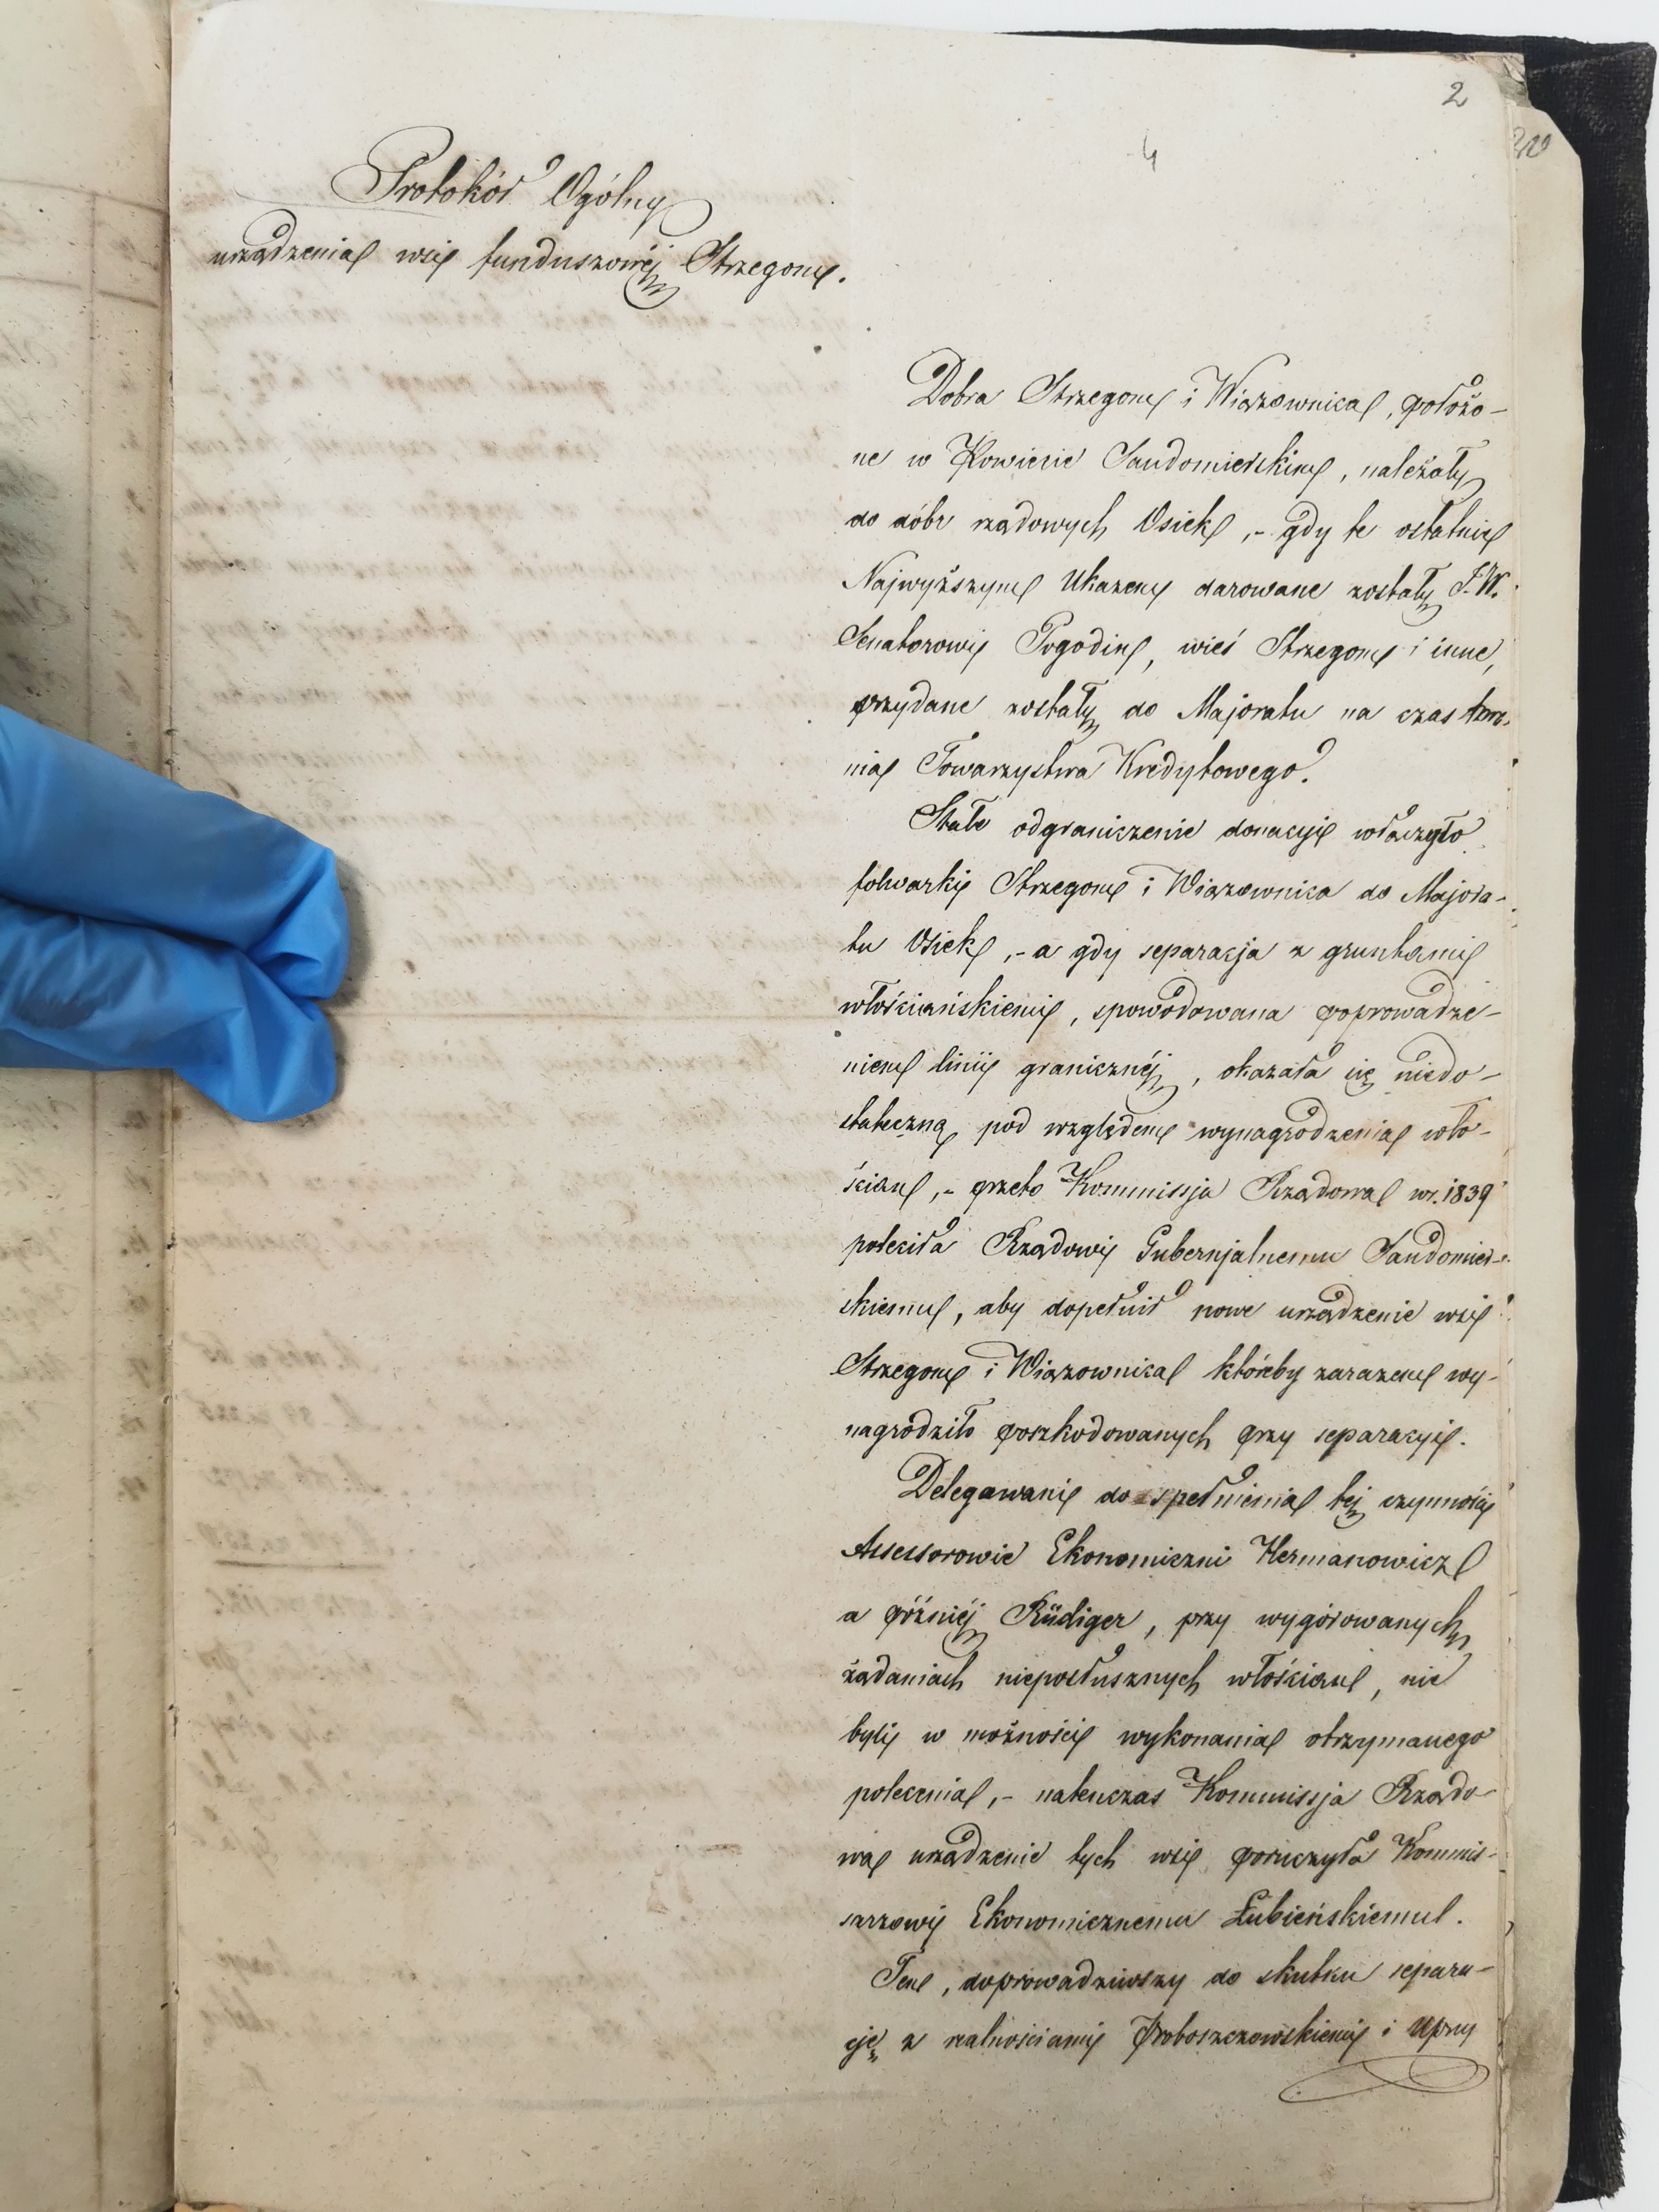 2
4
Protokół Ogólny
urządzenia wsi funduszowéj Strzegom.
Dobra Strzegom i Wiązownica, położo-
ne w Powiecie Sandomierskim, należały
do dóbr rządowych Osiek,- gdy te ostatnie
Najwyższym Ukazem darowane zostały J.W.
Senatorowi Pogodin, wieś Strzegom i inne,
przydane zostały do Majoratu na czas trwa-
nia Towarzystwa Kredytowego.
Stałe odgraniczenie donacyi włączyło
folwarki Strzegom i Wiązownica do Majora-
tu Osiek,- a gdy separacja z gruntami
włościańskiemi, spowodowana poprowadze-
niem linii granicznéj, okazała się niedo-
stateczną pod względem wynagrodzenia wło-
ścian,- przeto Kommissja Rządowa w r. 1839
poleciła Rządowi Gubernjalnemu Sandomier-
skiemu, aby dopełnił nowe urządzenie wsi
Strzegom i Wiązownica któreby zarazem wy-
nagrodziło poszkodowanych przy separacyi.
Delegowani do spełnienia téj czynności
Assessorowie Ekonomiczni Hermanowicz
a późniéj Rüdiger, przy wygórowanych
żądaniach nieposłusznych włościan, nie
byli w możności wykonania otrzymanego
polecenia,- natenczas Kommissja Rządo-
wa urządzenie tych wsi poruczyła Kommis-
sarzowi Ekonomicznemu Łubieńskiemu.
Ten, doprowadziwszy do skutku separa-
cję z realnościami Proboszczowskiemi i Upru